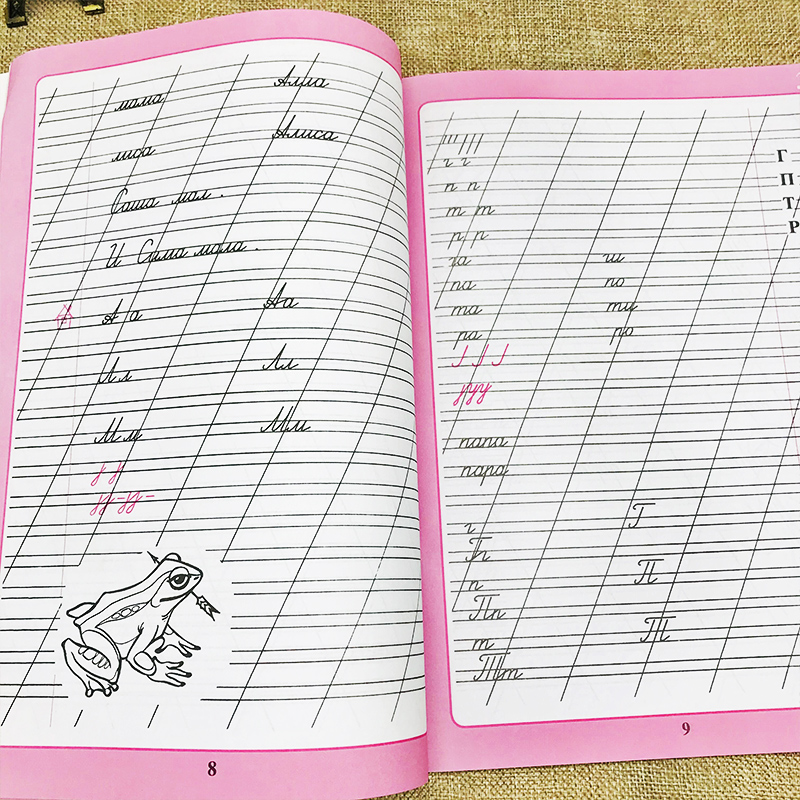 мама Алла
лиса Алиса
Саша мал.
И Сима мала.
А а Аа
Л л Лл
М м Мм
8
г г
п п
т т
р р
га ги
па по
та ти
ра ро
папа
пара
г Г
п П
Пп
т Т
Тт
Г
П
Т
Р
9